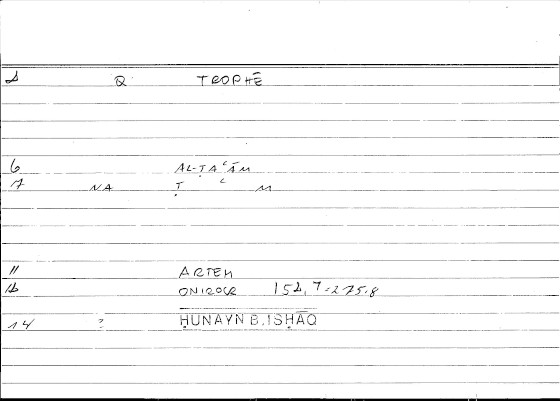 1 Q TROPHĒ
6 AL-ṬAʿĀM
7 NA Ṭ ʿ M
11 ARTEM
12 ONIROCR 152,7=275,8
14 ? ḤUNAYN B. ISḤĀQ